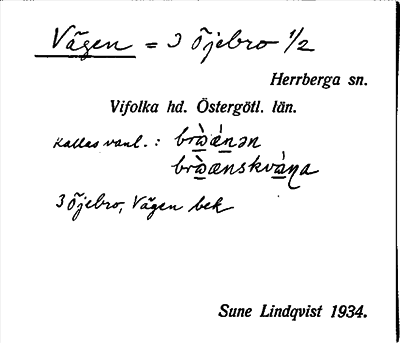 Vägen = 3 Öjebro 1/2
Herrberga sn.
Vifolka hd. Östergötl. län.
Kallas vanl.:
3 Öjebro, Vägen bek
Sune Lindqvist 1934.